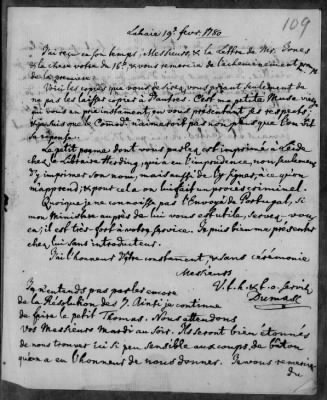 109
Lahaie 19e. fevr. 1780
J'ai reçu en son temps, Messieurs, & la Lettre de Mr.
& la chere votre du 16e. & vous remercie de l'acheminement
de la premiere.
Voici les copies que vous desirez, vous priant seulement de
ne pas les laisser copier à d'autres. C'est ma petite Muse
qui vous en prie instamment, en vous présentant ses respects
la Comed. n'aimeroit pas non plus que l'on dit
sa réponse.
Le petit poeme dont vous parlez est imprimé à Leide
chez le Libraire Herding, qui a eu l'impudence, non seulement
d'y imprimer son nom, mais aussi de lignes, à ce qu'on
m'apprend; & pour cela on lui fait un procès criminel.
Quoique je ne connoisse pas l'Envoyé de Portugal, si
mon Ministere auprès de lui vous est utile,
il est très fort à votre service. Je puis bien me présenter
chez lui sans introducteur.
J'ai l'honneur d'être constamment, & sans cérémonie
Messieurs
V. t. h. & t. o. servit
Dumas
Je n'entends pas parler encore
de la Résolution des 7. Ainsi je continue
de faire le petit Thomas. Nous attendons
vos Messieurs Mardi au soir. Ils seront bien étonnés
de nous trouver ici si peu sensible aux coups de bâton
qu'on a eu l'honneur de nous donner. Je vous
du